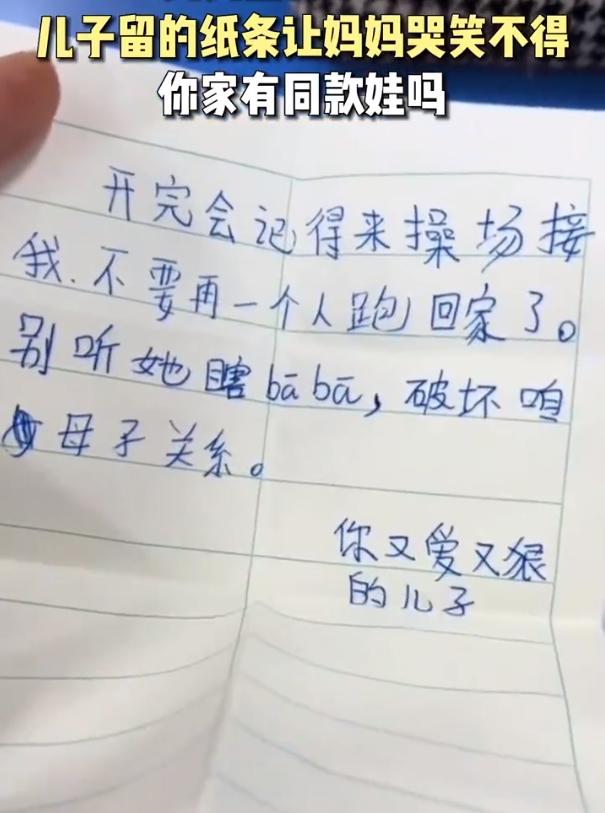 儿子留的纸条让妈妈哭笑不得
你家有同款娃吗
开完会记得来操场接
我.不要再一个人跑回家了。
别听她瞎bā bā,破坏咱
母子关系。
你又爱又狠
的儿子